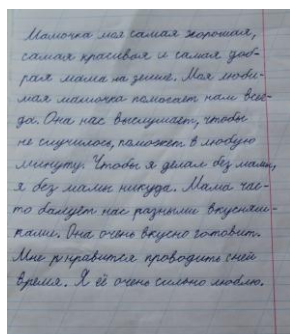 Мамочка моя самая хорошая,
самая красивая и самая доб-
рая мама на земле. Моя люби-
мая мамочка помогает нам всег-
да. Она нас выслушает, чтобы
не случилось, поможет в любую
минуту. Чтобы я делал без мамы,
я без мамы никуда. Мама час-
то балует нас разными вкусняш-
ками. Она очень вкусно готовит.
Мне нравится проводить с ней
время. Я её очень сильно люблю.